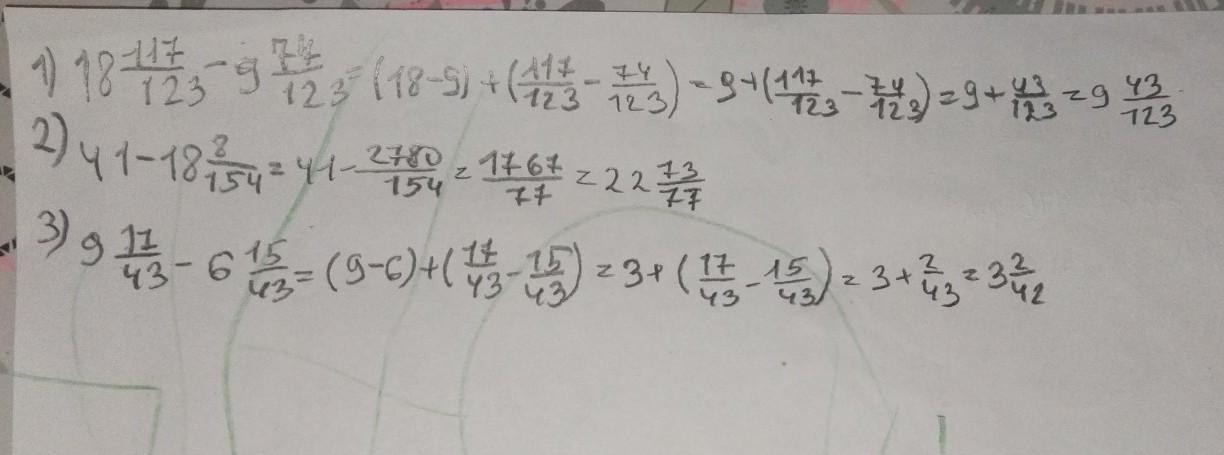 1) 18 117/123 - 9 74/123 = (18-9) + (117/123 - 74/123) = 9+(117/123 - 74/123) = 9 + 43/123 = 9 43/123
2) 41-18 8/154 = 41- 2780/154 = 1767/77 = 22 73/77
3) 9 17/43 - 6 15/43 = (9-6)+(17/43 - 15/43) = 3+(17/43 - 15/43) = 3+ 2/43 = 3 2/42